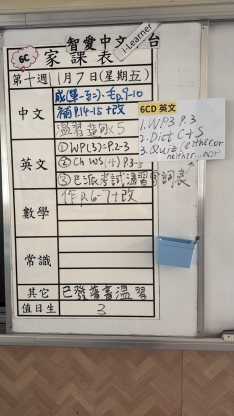 智愛中文 台
i-Learner
6C 家課表
第十週 1月7日(星期五)
中文
補 P.14-15+改
英文
① WP(3)=P.2-3
② Ch WS(4) P.3-5
③ 已派考試溫習
6CD 英文
1. WP3 P.3
2. Dict C+S
3. Quiz (either or
neither...nor
數學
作 p.6-7+改
常識
其它
已發書溫習
值日生
3